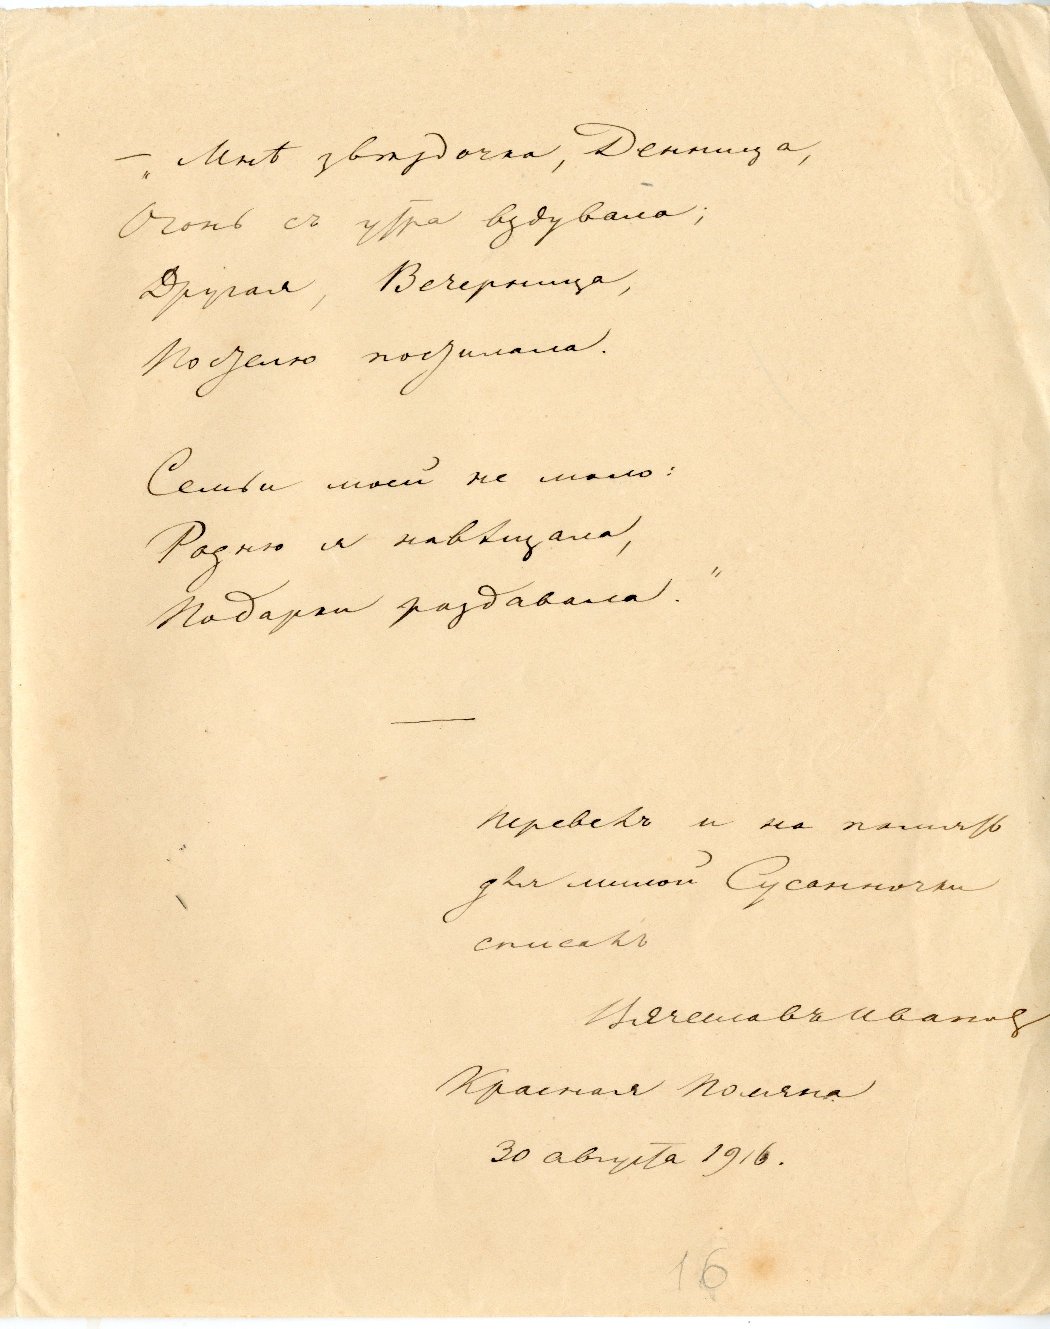 — „Мнѣ звѣздочка, Денница,
Огонь съ утра вздувала;
Другая, Вечерница,
Постелю постилала.
Семьи моей не мало:
Родню я навѣщала,
Подарки раздавала."
Перевелъ и на память
для милой Сусанночки
списалъ
Вячеславъ Иванов
Красная Поляна
30 августа 1916.
16